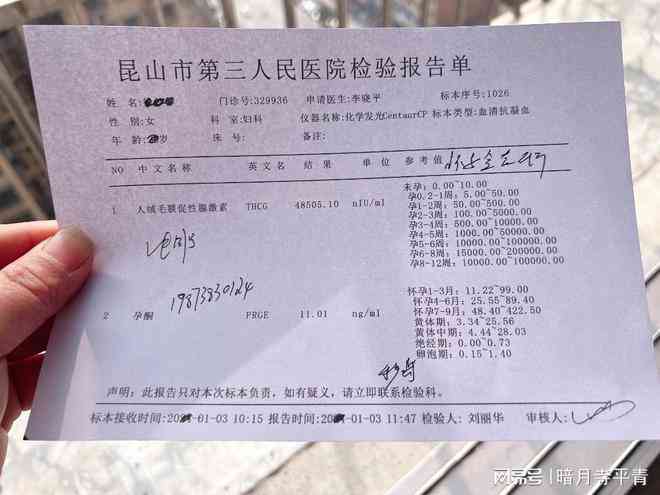 昆山市第三人民医院检验报告单
姓 名: 门诊号:329936 申请医生:李晓平 标本序号:1026
性 别:女 科 室:妇科 仪器名称:化学发光CentaurCP 标本类型:血清抗凝血
年 龄: 岁 床 号: 备注:
NO 中文名称 英文名 结果 单位 参考值
1 人绒毛膜促性腺激素 THCG 48505.10 nIU/ml
未孕: 0.00~10.00
孕0.2-1周: 5.00~50.00
孕1-2周: 50.00~500.00
孕2-3周: 100.00~5000.00
孕3-4周: 500.00~10000.00
孕4-5周: 1000.00~50000.00
孕5-6周: 10000.00~100000.00
孕6-8周: 15000.00~200000.00
孕8-12周: 10000.00~100000.00
19873830124
2 孕酮 PRGE 11.01 ng/ml
怀孕1-3月: 11.22~99.00
怀孕4-6月: 25.55~89.40
怀孕7-9月: 48.40~422.50
黄体期: 3.34~25.56
黄体中期: 4.44~28.03
绝经期: 0.00~0.73
卵泡期: 0.15~1.40
声明: 此报告只对本次标本负责, 如有疑义, 请立即联系检验科。
标本接收时间:20 -01-03 10:15 报告时间:20 -01-03 11:47 检验人: 刘丽华 审核人:
搜狐号@暗月寺平青